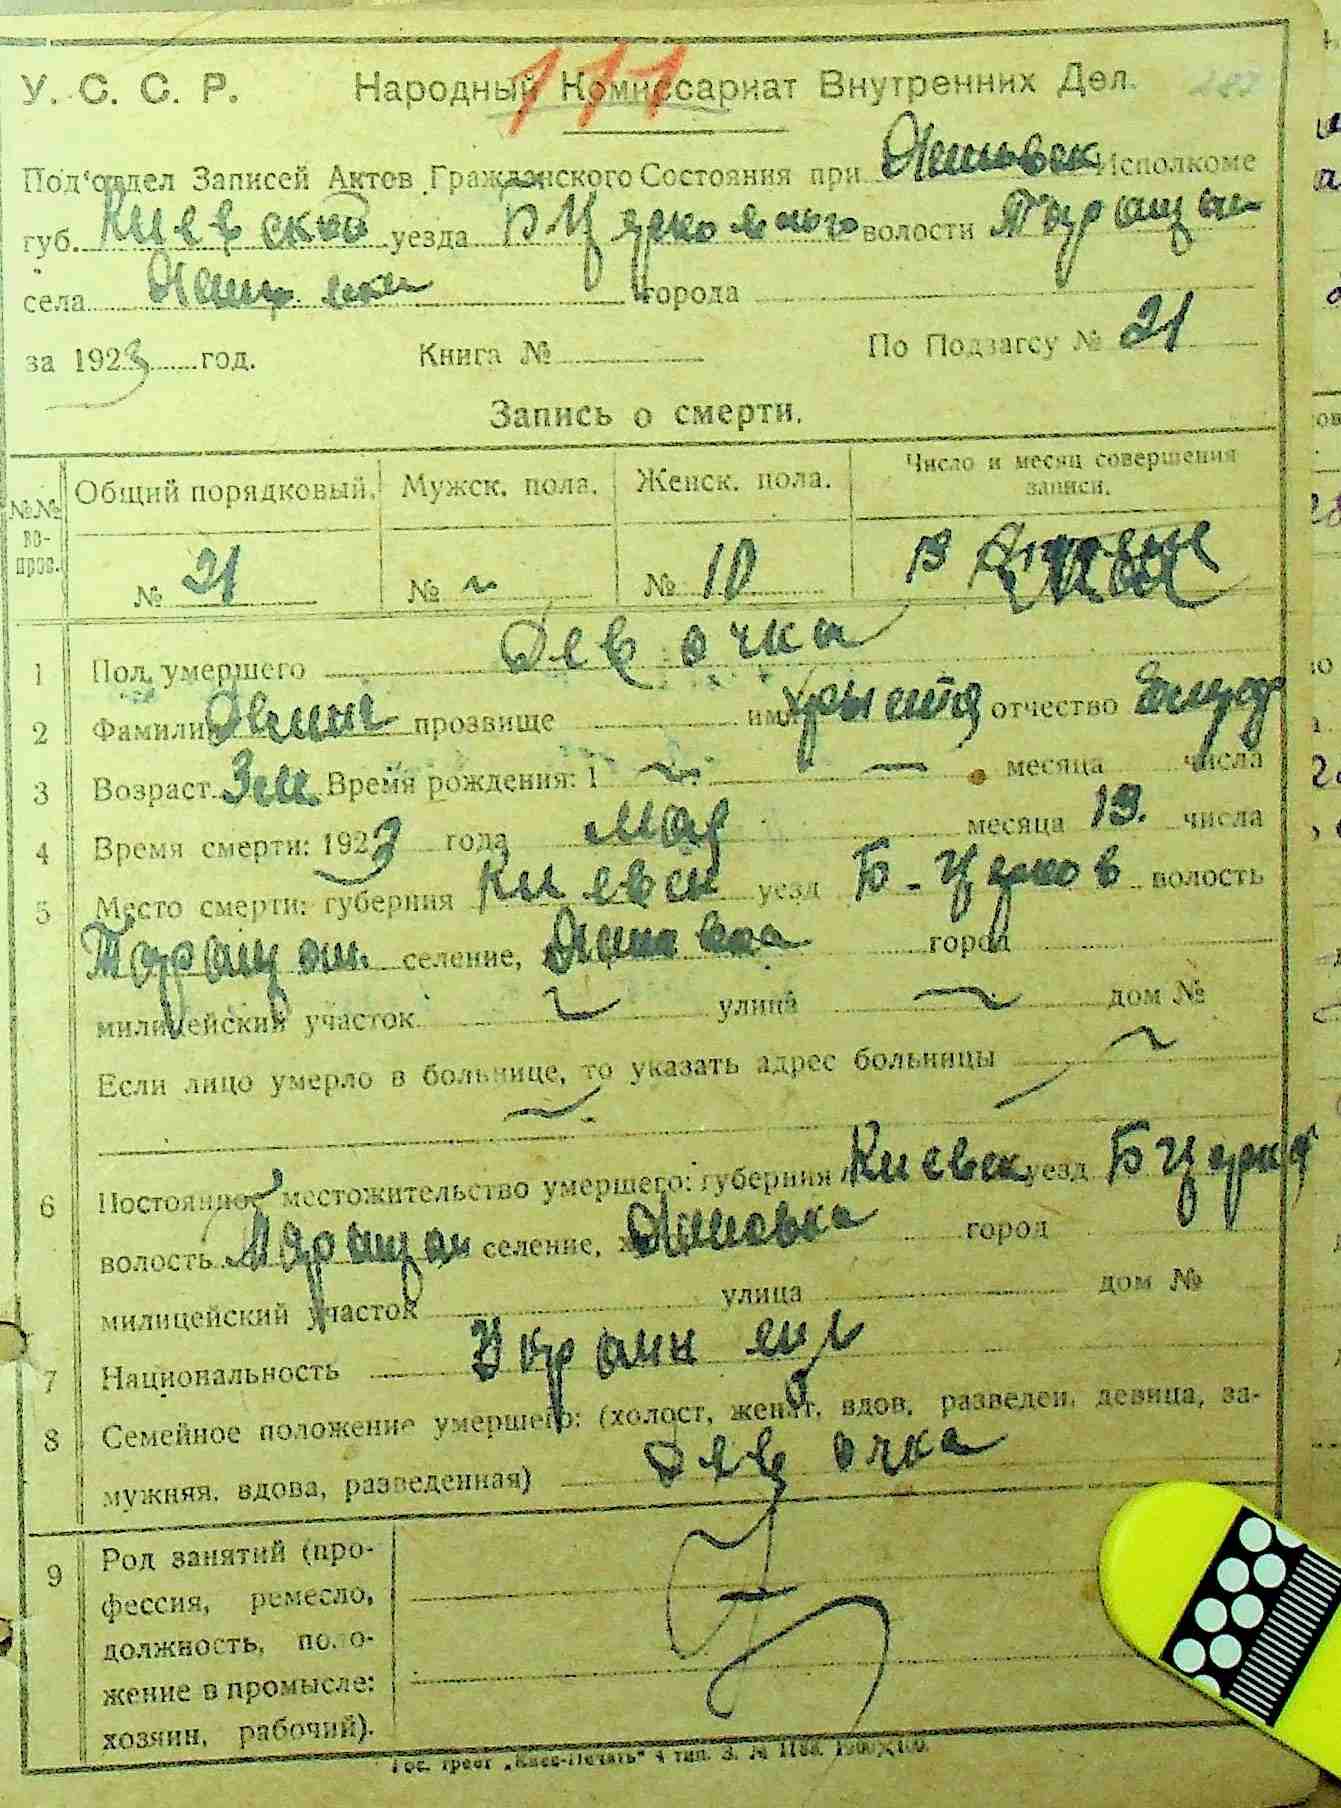 111
У. С. С. Р. Народный Комиссариат Внутренних Дел.
Под'отдел Записей Актов Гражданского Состояния при Исполкоме
губ. Киевской уезда Б Церковского волости Таращан
села города
за 1923 год. Книга № По Подзагсу № 21
Запись о смерти.
№№ во-прос. Общий порядковый. Мужск. пола. Женск. пола. Число и месяц совершения записи.
№ 21 № ~ № 10
1 Пол умершего Девочка
2 Фамилия прозвище имя отчество
3 Возраст Время рождения: 1 ~ — месяца числа
4 Время смерти: 1923 года мая месяца 19. числа
5 Место смерти: губерния Киевск уезд Б. Церков волость
Таращан. селение, город
милицейский участок ~ улица ~ дом №
Если лицо умерло в больнице, то указать адрес больницы ~
6 Постоянное местожительство умершего: губерния Киевск уезд Б Церков
волость Таращан селение, город
милицейский участок улица дом №
7 Национальность
8 Семейное положение умершего: (холост, женат, вдов, разведен, девица, за-
мужняя, вдова, разведенная) Девочка
9 Род занятий (про-
фессия, ремесло,
должность, поло-
жение в промысле:
хозяин, рабочий).
Гос. трест „Киев-Печать" 4 тип. З. №